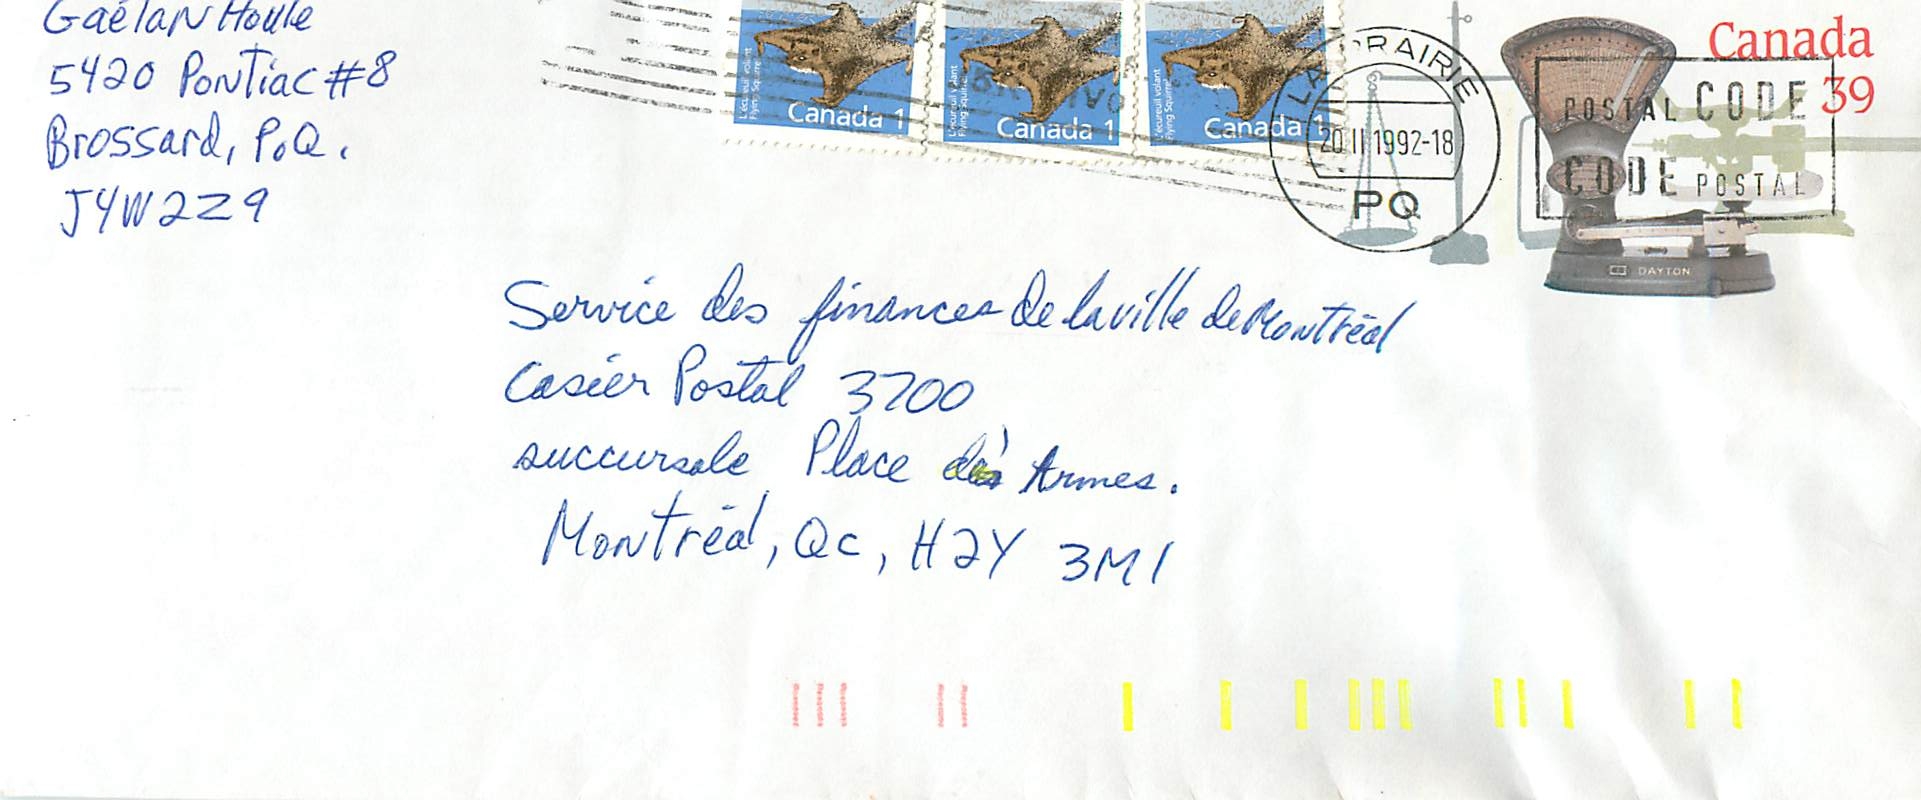 Gaétan Houle
5420 Pontiac #8
Brossard, P.Q.
J4W2Z9
L'écureuil volant
Flying Squirrel
Canada 1
L'écureuil volant
Flying Squirrel
Canada 1
L'écureuil volant
Flying Squirrel
Canada 1
LA PRAIRIE
20 II 1992-18
PQ
Canada
39
POSTAL CODE
CODE POSTAL
DAYTON
Service des finances de la ville de Montréal
Casier Postal 3700
succursale Place des Armes.
Montréal, Qc, H2Y 3M1